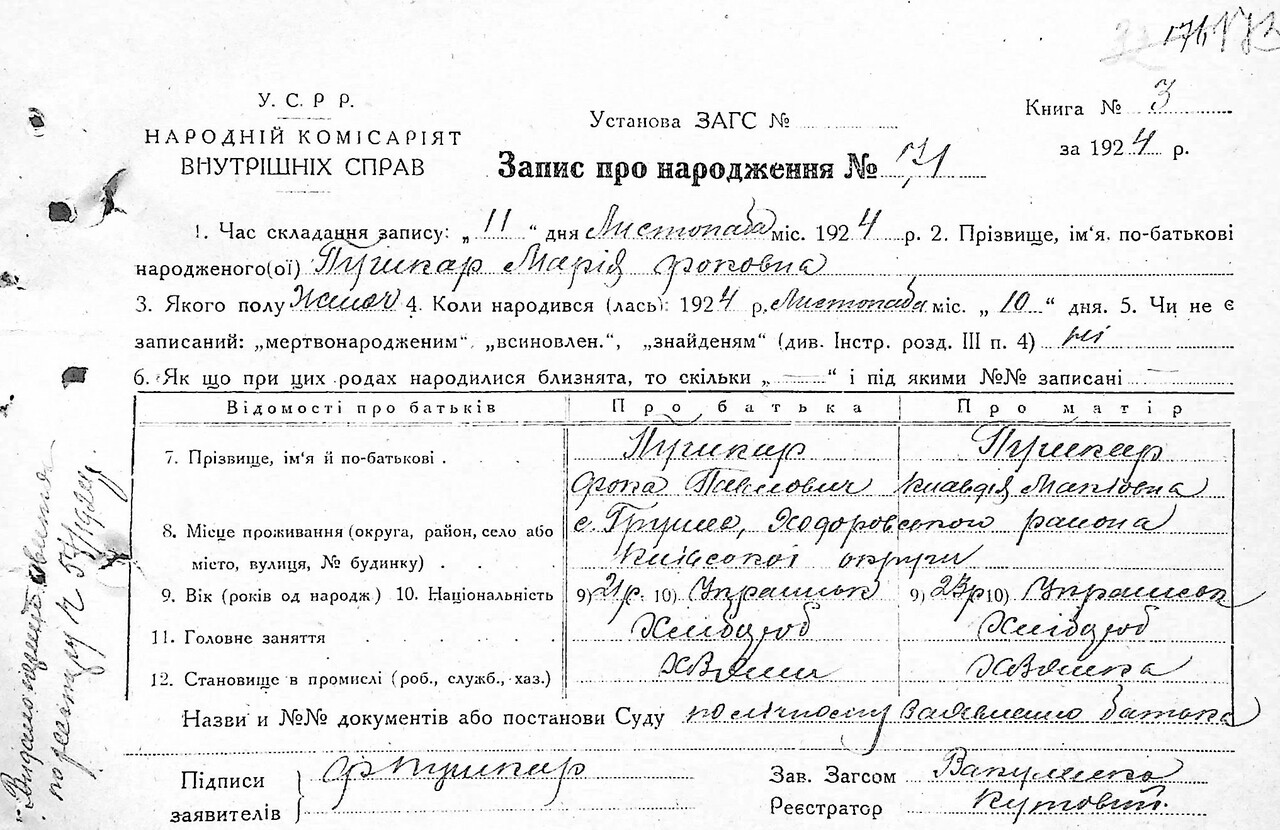 176
У. С. Р Р.
НАРОДНІЙ КОМІСАРІЯТ
ВНУТРІШНІХ СПРАВ
Установа ЗАГС №
Книга № 3
за 1924 р.
Запис про народження № 171
1. Час складання запису: „ 11 “ дня Листопада міс. 1924 р. 2. Прізвище, ім'я. по-батькові
народженого(ої) Пушкар Марія Фоковна
3. Якого полу Жіноч 4. Коли народився (лась): 1924 р. Листопада міс. „ 10 “ дня. 5. Чи не є
записаний: „мертвонародженим“, „всиновлен.“, „знайденям“ (див. Інстр. розд. III п. 4) ні
6. Як що при цих родах народилися близнята, то скільки „ — “ і під якими №№ записані —
Відомості про батьків Про батька Про матір
7. Прізвище, ім'я й по-батькові . . . Пушкар Пушкар
Фока Павлович Клавдія
8. Місце проживання (округа, район, село або с. Грушів, Ходоровського района
місто, вулиця, № будинку) . . . Київської округи
9. Вік (років од народж) 10. Національність 9) 21 р. 10) Україньськ 9) 23 р 10) Україньськ
11. Головне заняття . . . . Хлібороб Хлібороб
12. Становище в промислі (роб., служб., хаз.) Хазяин Хазяйка
Назви и №№ документів або постанови Суду по личному заявлению батька
Підписи
заявителів
Ф Пушкар
Зав. Загсом Вакуленко
Реєстратор Кутовий.